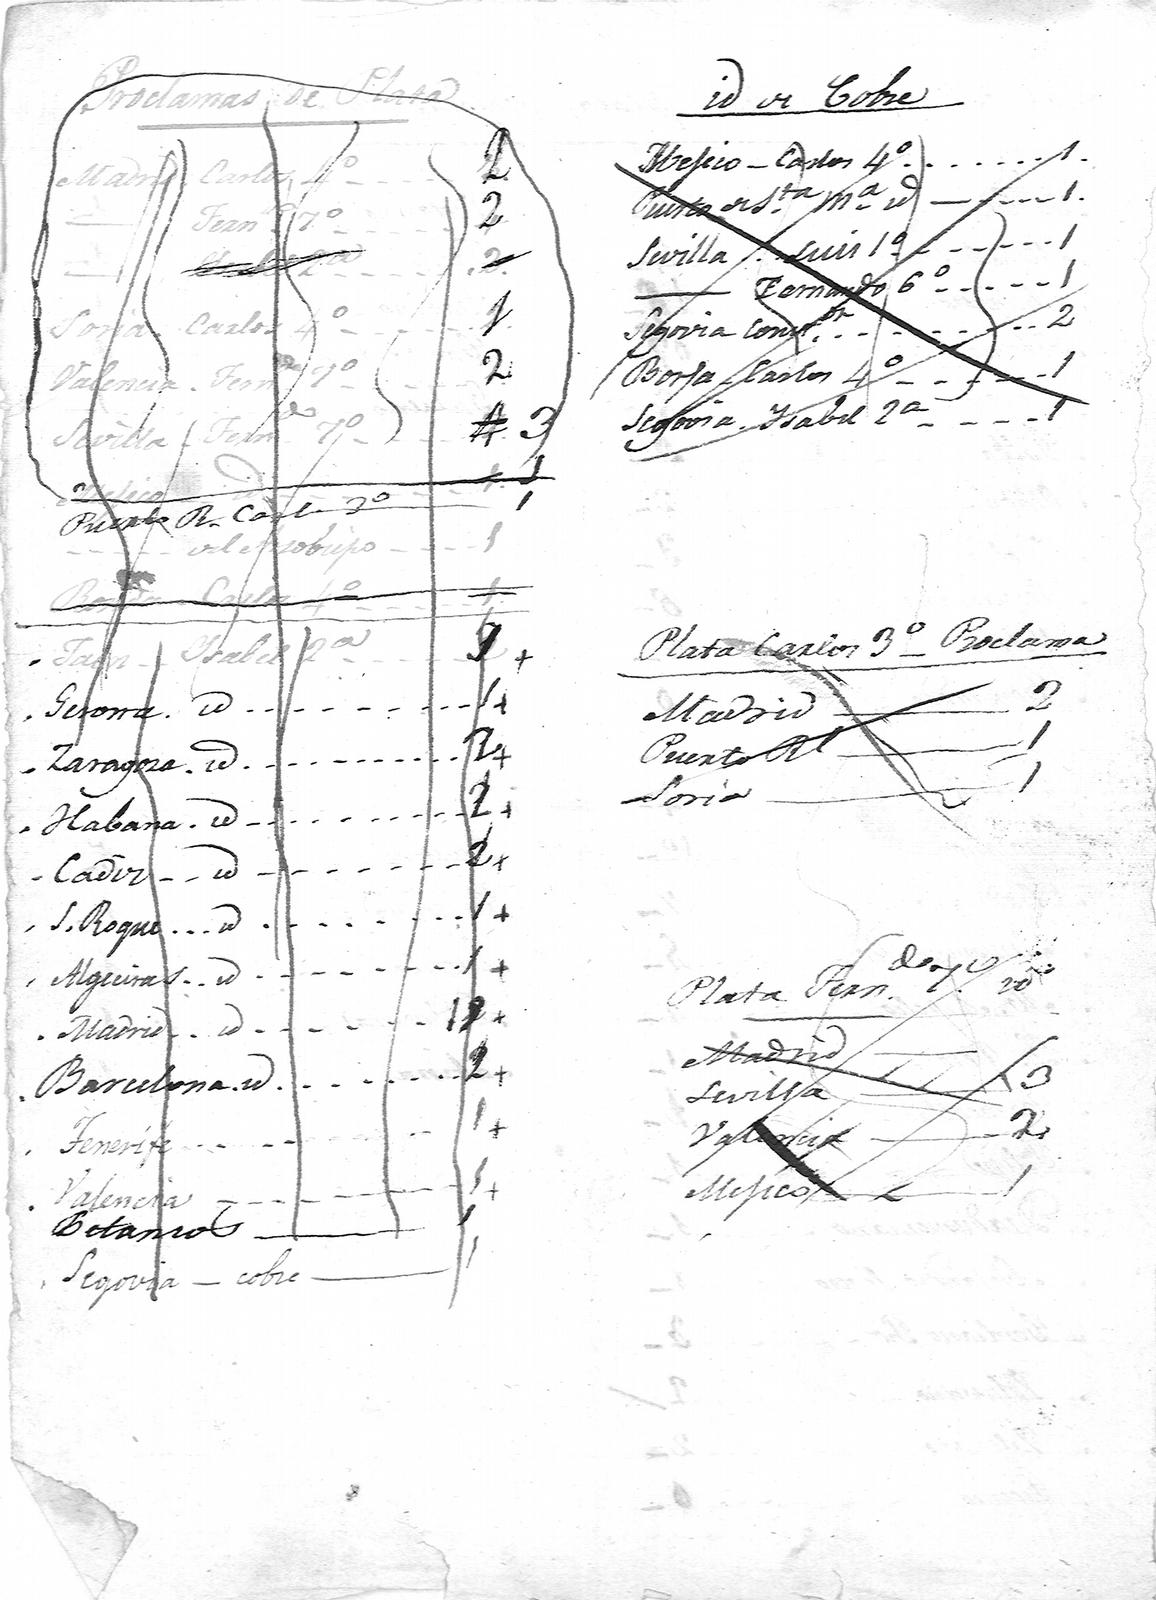 Proclamas de Plata
Madrid. Carlos 4º 2
— Fernº 7º 2
— 2ª 2
Soria. Carlos 4º 1
Valencia. Fernº 7º 2
Sevilla Fernº 7º 4 3
Mejico id 1 1
Puerto R. Carl. 3º 1
del Arzobispo 1
Carlos 4º 1
Jaen Isabel 2ª 1 +
Gerona. id 1 +
Zaragoza. id 2 +
Habana. id 2 +
Cadiz id 2 +
S. Roque id 1 +
Algeciras id 1 +
Madrid id 12 +
Barcelona. id 2 +
Tenerife 1 +
Valencia 1 +
Betanzos 1
Segovia — cobre 1
id de Cobre
Mejico — Carlos 4º 1.
Puerto de Sta Mª id 1.
Sevilla Luis 1º 1
— Fernando 6º 1
Segovia Const.on 2
Borja Carlos 4º 1
Segovia Isabel 2ª 1
Plata Carlos 3º Proclama
Madrid 2
Puerto Rl 1
Soria 1
Plata Fern.do 7º id
Madrid
Sevilla 3
Valencia 2
Mejico 1